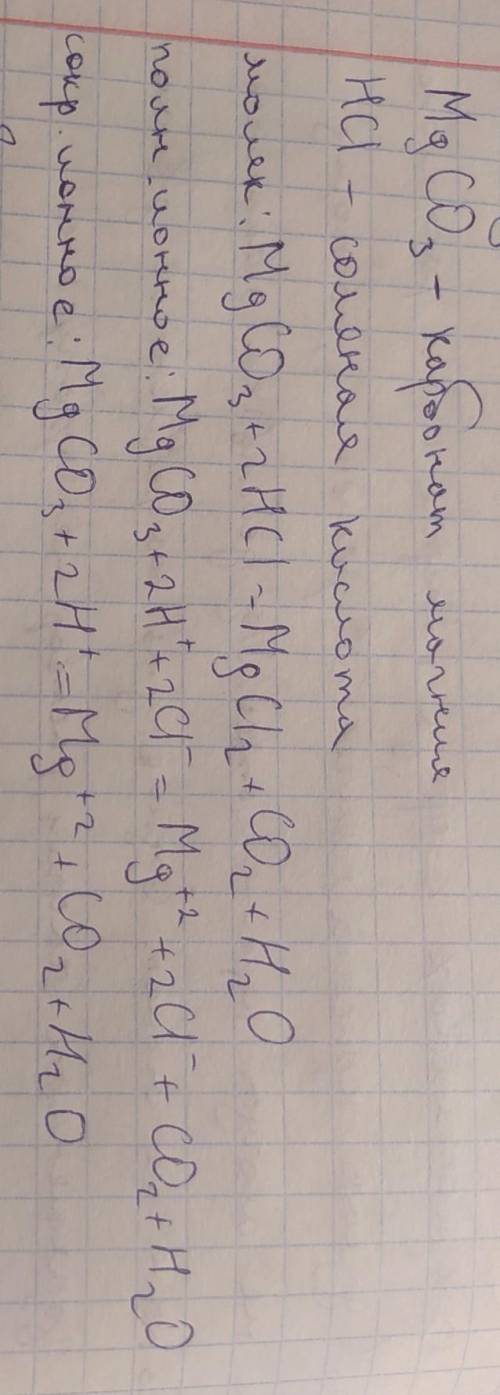 MgCO₃ - карбонат магния
HCl - соляная кислота
молек: MgCO₃ + 2HCl = MgCl₂ + CO₂ + H₂O
полн. ионное: MgCO₃ + 2H⁺ + 2Cl⁻ = Mg⁺² + 2Cl⁻ + CO₂ + H₂O
сокр. ионное: MgCO₃ + 2H⁺ = Mg⁺² + CO₂ + H₂O